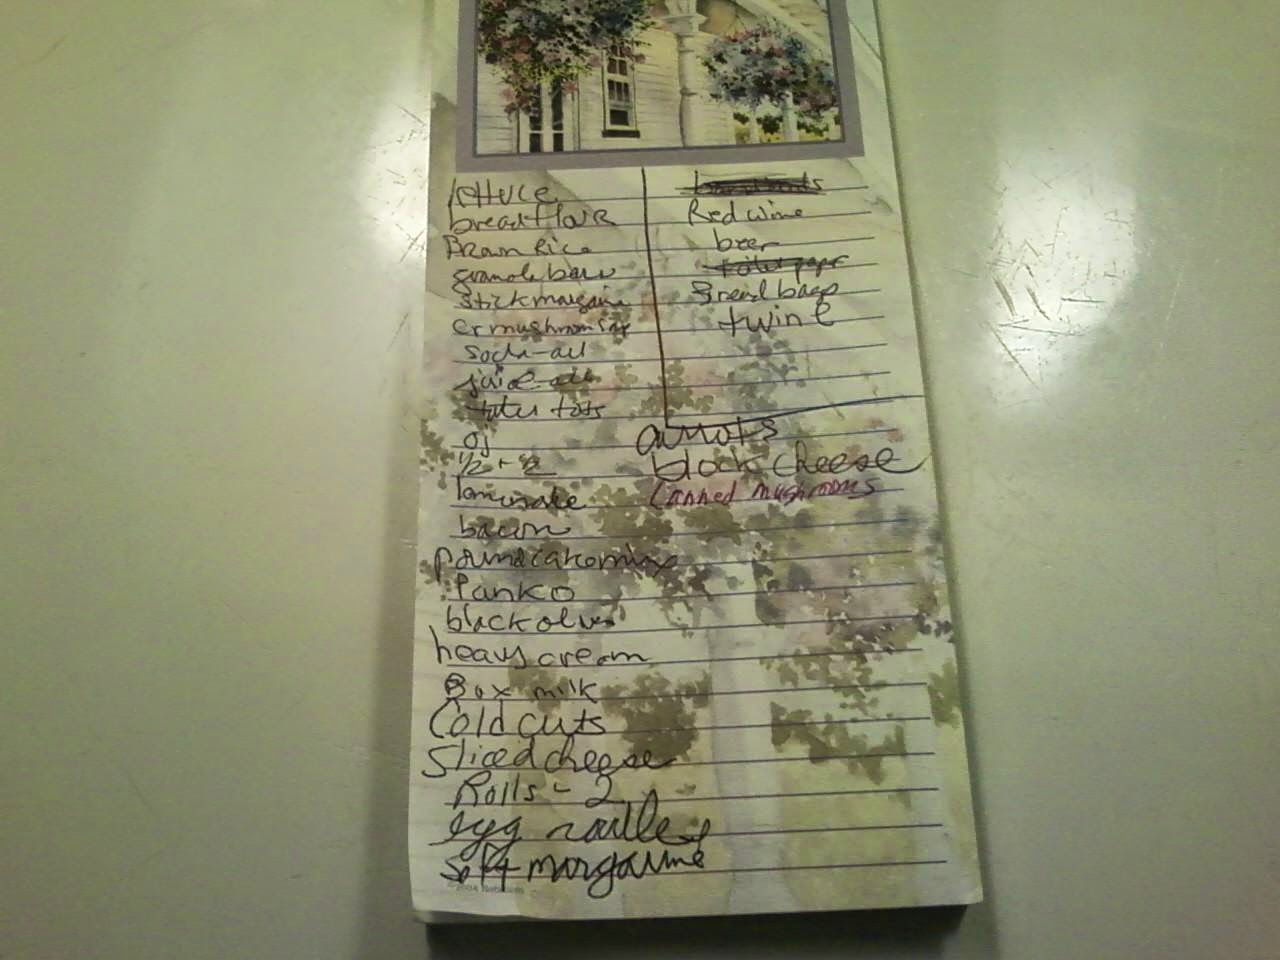 lettuce
bread flour
Brown Rice
granola bars
stick margarine
cr mushroom soup
soda-all
juice-all
tater tots
oj
1/2 + 1/2
lemonade
bacon
pound cake mix
Panko
black olives
heavy cream
Box milk
Cold cuts
Sliced cheese
Rolls - 2
egg noodles
soft margarine
Red wine
beer
toilet paper
Bread bags
twine
carrots
block cheese
Canned mushrooms